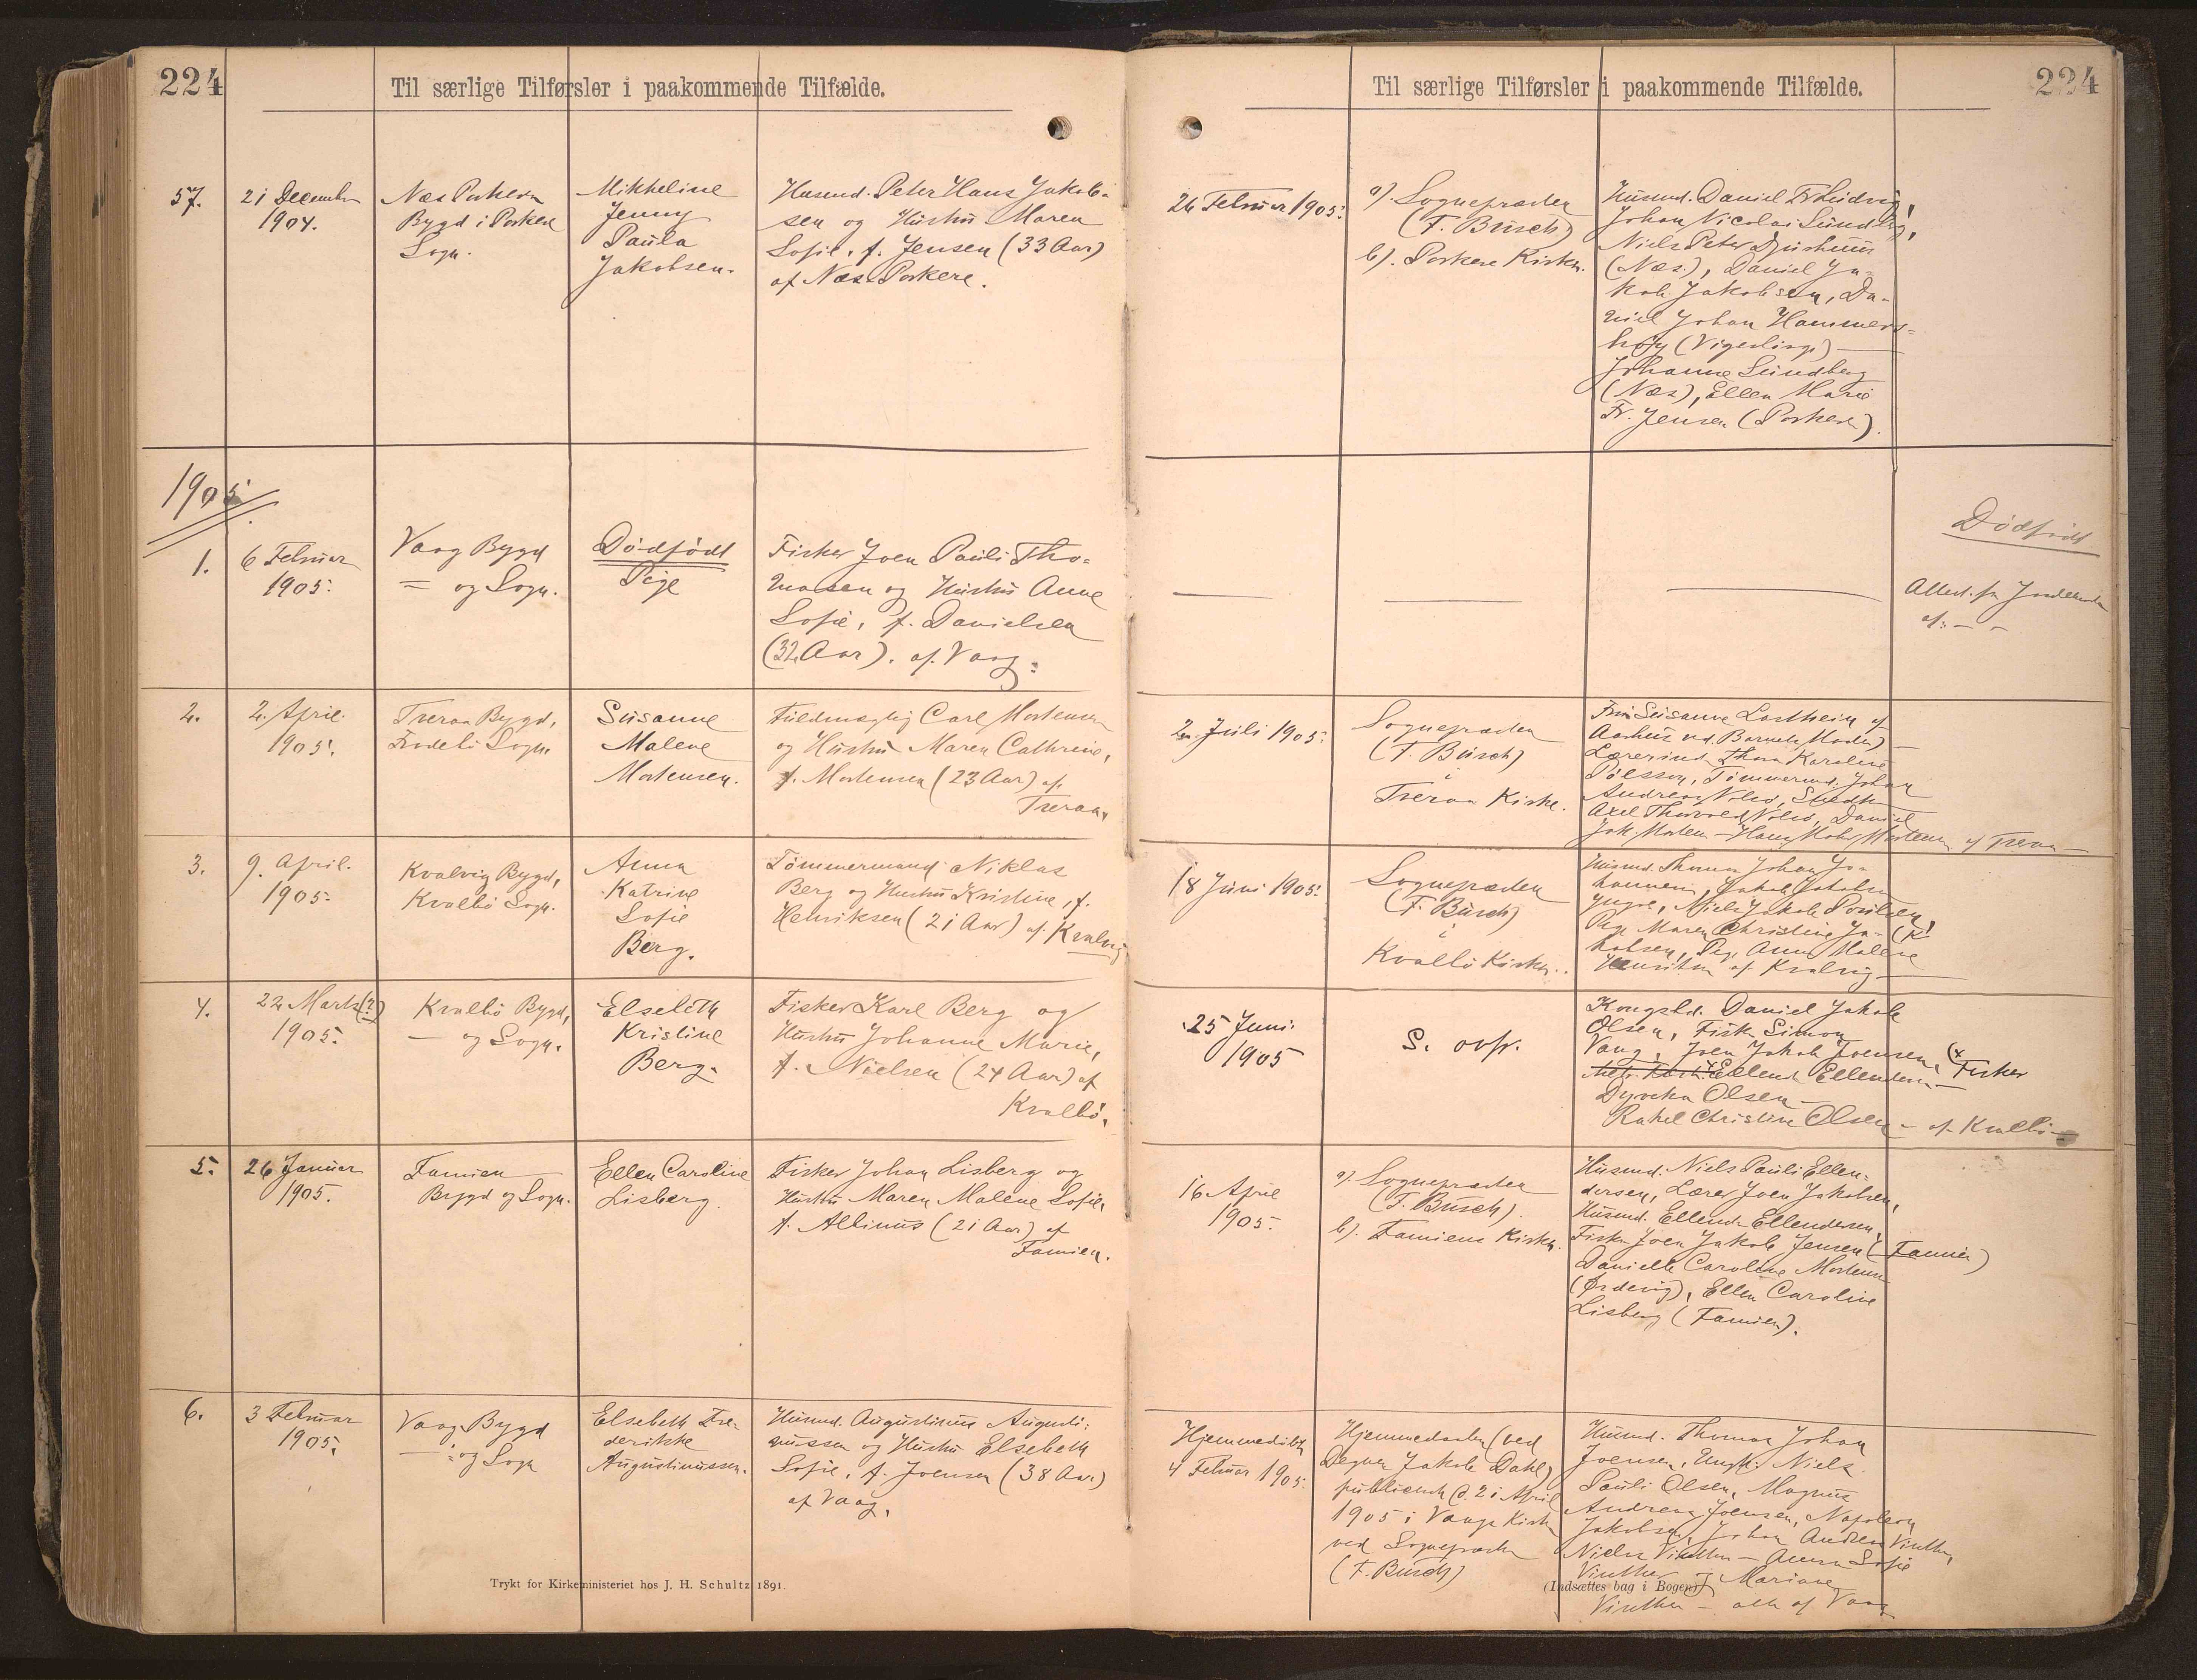 224
Til særlige Tilførsler i paakommende Tilfælde.
57.
21 December
1904.
Næs Porkere
Bygd i Porkere
Sogn.
Mikkeline
Jenny
Paula
Jakobsen.
Husmd. Peter Hans Jakob-
sen og Hustru Maren
Sofie, f. Jensen (33 Aar)
af Næs Porkere.
1905
1.
6 Februar
1905.
Vaag Bygd
= og Sogn.
Dødfødt
Pige
Fisker Joen Pauli Tho-
masen og Hustru Anne
Sofie, f. Danielsen
(32 Aar). af Vaag.
2.
2. April.
1905.
Tveraa Bygd,
Frodebö Sogn
Susanne
Malene
Mortensen.
Fuldmægtig Carl Mortensen
og Hustru Maren Cathrine,
f. Mortensen (23 Aar) af
Tveraa.
3.
9. April.
1905.
Kvalvig Bygd,
Kvalbö Sogn.
Anna
Katrine
Sofie
Berg.
Tömmermand Niklas
Berg og Hustru Kristine, f.
Henriksen (21 Aar) af Kvalvig
4.
22 Marts (?)
1905.
Kvalbö Bygd,
— og Sogn.
Elsebeth
Kristine
Berg.
Fisker Karl Berg og
Hustru Johanne Marie,
f. Nielsen (24 Aar) af
Kvalbö.
5.
26 Januar
1905.
Famien
Bygd og Sogn.
Ellen Caroline
Lisberg.
Fisker Johan Lisberg og
Hustru Maren Malene Sofie,
f. Albinus (21 Aar) af
Famien.
6.
3 Februar
1905.
Vaag Bygd
— og Sogn
Elsebeth Fre-
derikke
Augustinussen.
Husmd. Augustinus Augusti-
nussen og Hustru Elsebeth
Sofie, f. Joensen (38 Aar)
af Vaag.
Trykt for Kirkeministeriet hos J. H. Schultz 1891.
Til særlige Tilførsler i paakommende Tilfælde.
224
26 Februar 1905.
a). Sognepræsten
(F. Büsch)
b). Porkere Kirke.
Husmd. Daniel Fr. Ludvig,
Johan Nicolai Lundberg,
Niels Peter Djurhuus
(Næs), Daniel Ja-
kob Jakobsen, Da-
niel Johan Hammers-
höj (Vigerlinge) —
Johanne Lundberg
(Næs), Ellen Marie
Fr. Jensen (Porkere).
Dödfödt
af: — —
2. Juli 1905.
Sognepræsten
(F. Büsch)
i
Tveraa Kirke.
Aarhus ved Barnets Moder) —
Lærerinde Thora Karoline
Poulsson, Tömmermd. Johan
Andreas
Axel Thorvald Daniel
Jak. Morten — Hans Mortensen af Tveraa —
18 Juni 1905.
Sognepræsten
(F. Büsch)
i
Kvalbö Kirke.
Husmd. Thomas Johan Jo-
hannesen, Jakob Jakobsen
Niels Jakob Poulsen,
Pige Maren Christine Ja-
kobsen, Pige Anna Malene
Henriksen af Kvalvig —
25 Juni
1905
S. ovfr.
Kongsbd. Daniel Jakob
Olsen, Fisk. Simon
Vang, Joen Jakob Joensen, Fisker
Ellend. Ellendersen —
Dyveka Olsen —
Rakel Christine Olsen — af Kvalbö —
16 April
1905.
a). Sognepræsten
(F. Büsch).
b). Famiens Kirke.
Husmd. Niels Pauli Ellen-
dersen, Lærer Joen Jakobsen,
Husmd. Ellend. Ellendersen,
Fisker Joen Jakob Jensen (Famien)
Danielle Caroline Mortensen
(Ørdevig), Ellen Caroline
Lisberg (Famien).
Hjemmedöbt
4 Februar 1905.
Hjemmedöbt (ved
Degnen Jakob Dahl)
publiceret d. 21 April
1905 i Vaags Kirke
ved Sognepræsten
(F. Büsch)
Husmd. Thomas Johan
Joensen, Ungk. Niels
Pauli Olsen, Magnus
Andreas Joensen, Napoleon
Jakobsen, Johan Andreas Vinther,
Niels Vinther — Anna Sofie
Vinther, Mariane
Vinther — alle af Vaag
(Indsættes bag i Bogen)